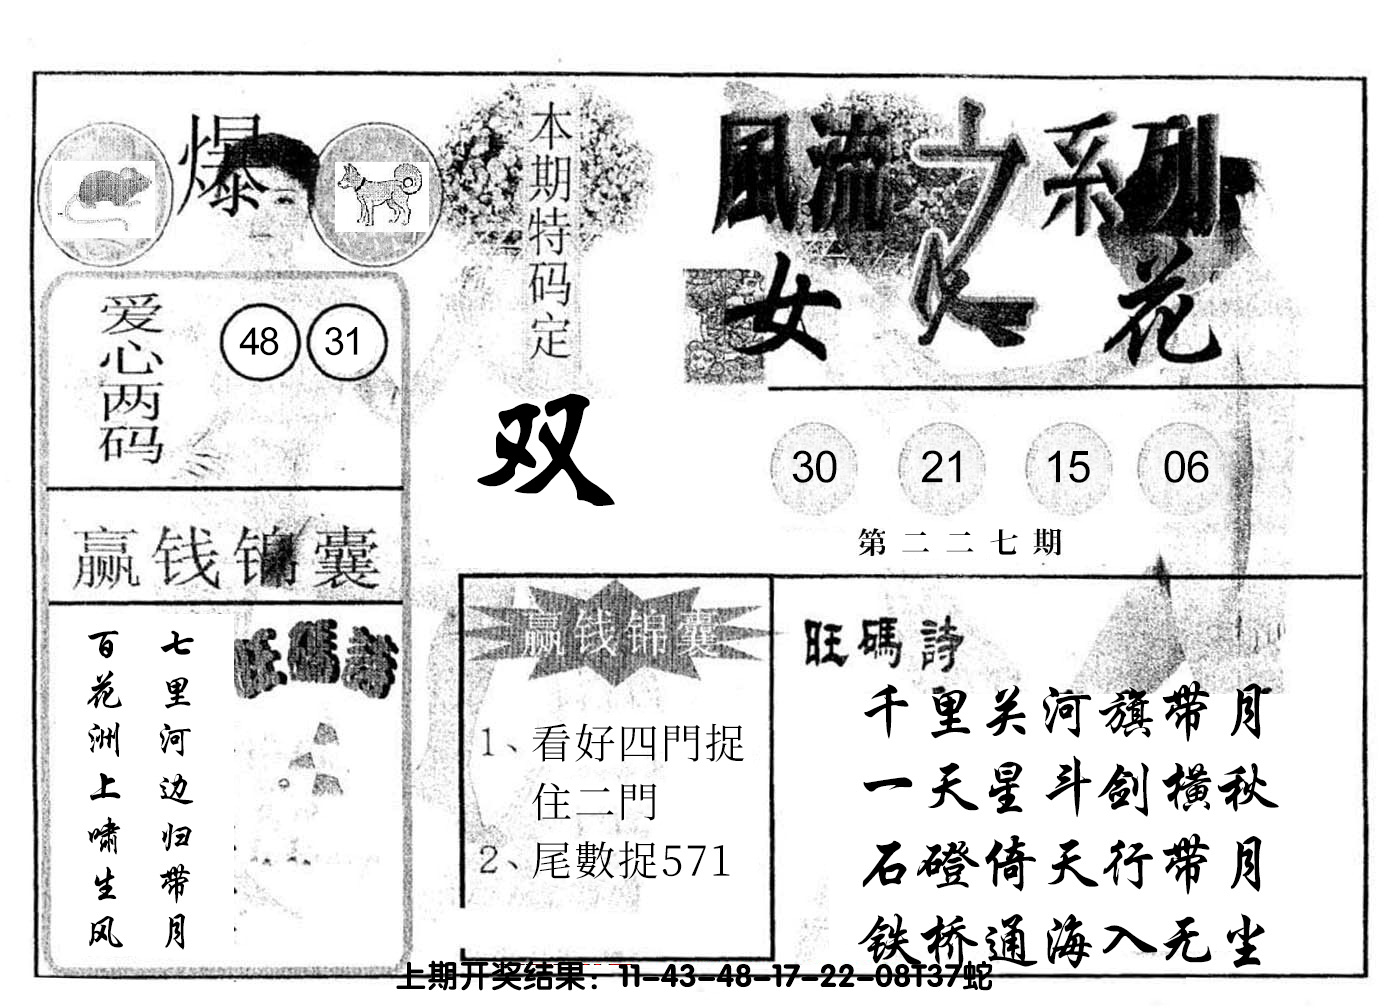 爆
爱心两码
48 31
赢钱锦囊
七里河边归带月
百花洲上啸生风
旺碼詩
本期特码定
双
風流之系列
女人花
30 21 15 06
第二二七期
赢钱锦囊
1、看好四門捉
住二門
2、尾數捉571
旺碼詩
千里关河旗带月
一天星斗剑横秋
石磴倚天行带月
铁桥通海入无尘
上期开奖结果：11-43-48-17-22-08T37蛇